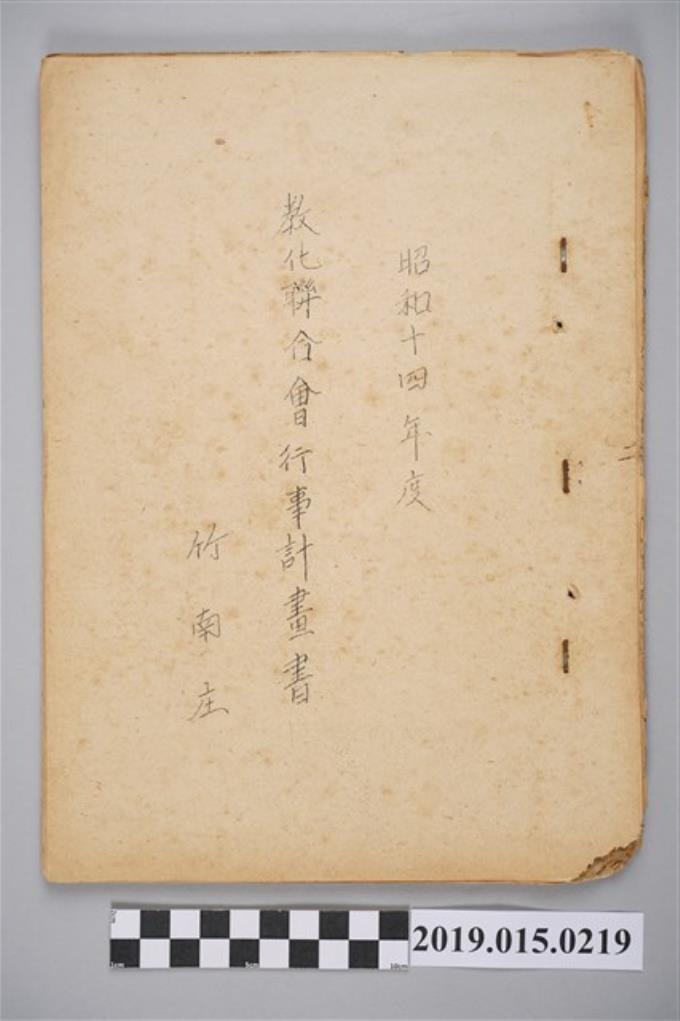 昭和十四年度
教化聯合會行事計畫書
竹南庄
2019.015.0219
1cm 5cm 10cm